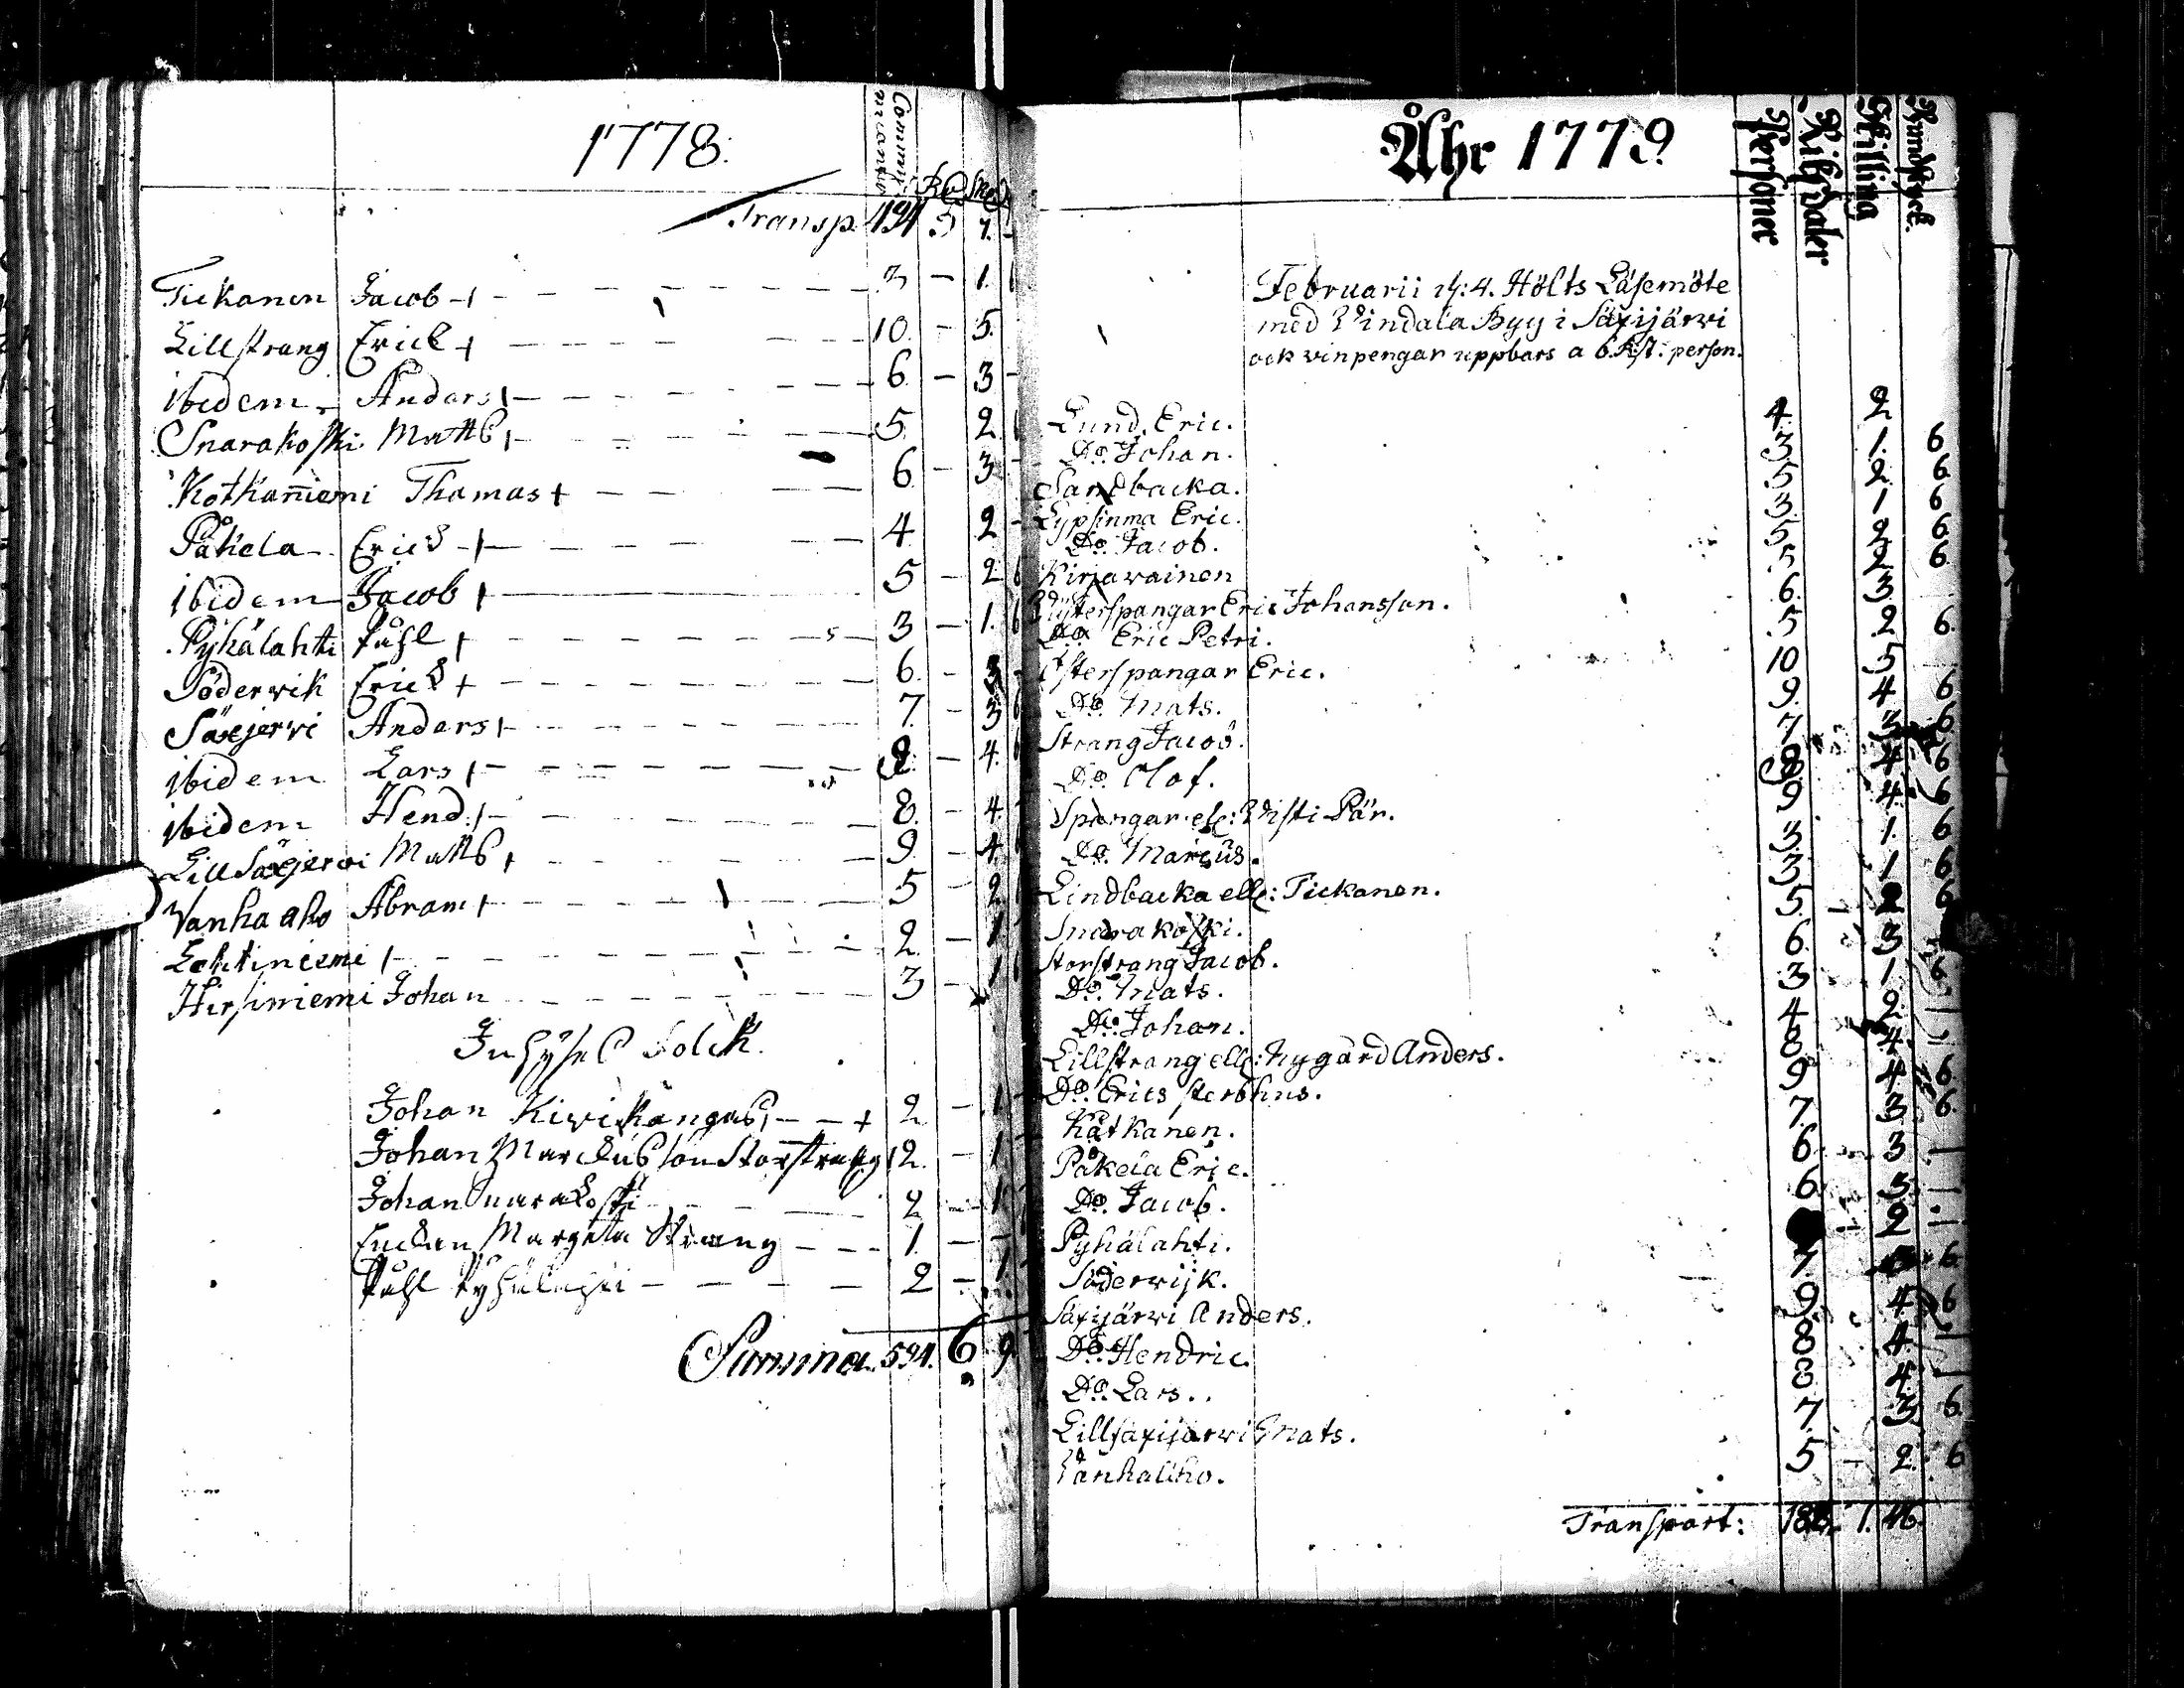 1778.
Communicantes Rd Sk
Transp. 494 5 7. -
Tickanen Jacob + - - - 3 - 1. 6
Lillstrang Erick + - - - 10. - 5.
ibidem Anders + - - - 6. - 3 -
Snarakoski Matts + - - - 5 2 6
Kotkaniemi Thomas + - - - 6 - 3 -
Påkela Erick + - - - 4 2 -
ibidem Jacob + - - - 5 - 2 6
Pyhälahti Påhl + - - - 3 - 1. 6
Söderwik Erick + - - - 6. - 3 -
Säxjerwi Anders + - - - 7. - 3 6
ibidem Lars + - - - 4. 6
ibidem Hend. + - - - 8. - 4.
Lill Säxjerwi Matts + - - - 9 - 4.
Vanha aho Abram + - - - 5 - 2
Lehtiniemi + - - - 2. - 1
Hirsiniemi Johan - - - 3 - 1 6
Inhyses Folck.
Johan Kiwikangas + - - + 2 - 1 -
Johan Marckusson Storstrang 2. - 1
Johan Snarakoski - - - 2 - 1
Enckan Margeta Strang - - - 1. - -
Påhl Pyhälahti - - - 2 - 1
Summa 594. 6 9
Åhr 1779.
Personer
Riksdaler
Skilling
Rundstyck.
Februarii d: 4. Hölts Läsemöte
med Windala Byy i Säxijärwi
ock vinpengar uppbars a 6. R:st. person.
Lund. Eric. 4. 2
Do. Johan. 3. 1. 6
Sandbacka. 5 2. 6
Lypsinma Eric. 3. 1 6
Do. Jacob. 5 2 6
Kirjavainen 5 2 6
Wästerspangar Eric Johansson. 6. 3
Do. Eric Petri. 5 2 6.
Österspangar Eric. 10 5
Do. Mats. 9. 4 6
Strang Jacob. 7 3 6
Do. Olof. 4 6
Spangar ell: Wisti Pär. 9 4. 6
Do. Marcus. 3 1 6
Lindbacka ell: Tickanen. 3 1 6
Snarakoski. 5 2 6
Storstrang Jacob. 6. 3
Do. Mats. 3 1 6
Do. Johan. 4 2
Lillstrang ell: Nygård Anders. 8 4
Do. Erics sterbhus. 9 4 6.
Kätkänen. 7. 3 6.
Påkela Eric. 6 3 -
Do. Jacob. 6 3 -
Pyhälahti. 2 -
Söderwijk. 7. 6
Säxijärwi Anders. 9 4 6
Do. Hendric. 8 4
Do. Lars. 8 4
Lillsäxijärwi Mats. 7. 3 6.
Vanhaaho. 5 - 2. 6
Transport: 1. 46.